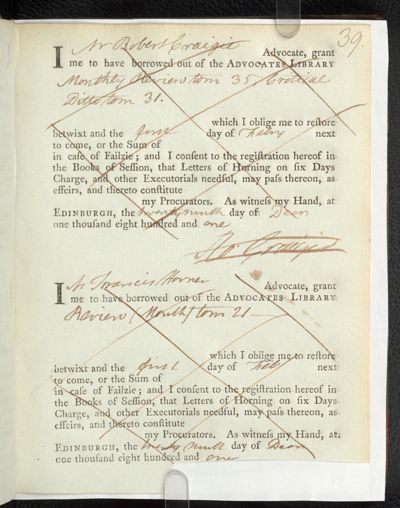 39.
I Mr Robert Craigie Advocate, grant
me to have borrowed out of the ADVOCATES LIBRARY
Monthly Review tom 35, Critical
Ditto tom 31.
which I oblige me to reſtore
betwixt and the first day of Febry next
to come, or the Sum of
in caſe of Failzie; and I conſent to the regiſtration hereof in
the Books of Seſſion, that Letters of Horning on ſix Days
Charge, and other Executorials needful, may paſs thereon, as
effeirs, and thereto conſtitute
my Procurators. As witneſs my Hand, at
EDINBURGH, the twenty ninth day of Decr
one thouſand eight hundred and one
Ro Craigie
I Mr Francis Horner Advocate, grant
me to have borrowed out of the ADVOCATES LIBRARY
Review (Month) tom 21
which I oblige me to reſtore
betwixt and the first day of Feb next
to come, or the Sum of
in caſe of Failzie; and I conſent to the regiſtration hereof in
the Books of Seſſion, that Letters of Horning on ſix Days
Charge, and other Executorials needful, may paſs thereon, as
effeirs, and thereto conſtitute
my Procurators. As witneſs my Hand, at
EDINBURGH, the twenty ninth day of Decr
one thouſand eight hundred and one